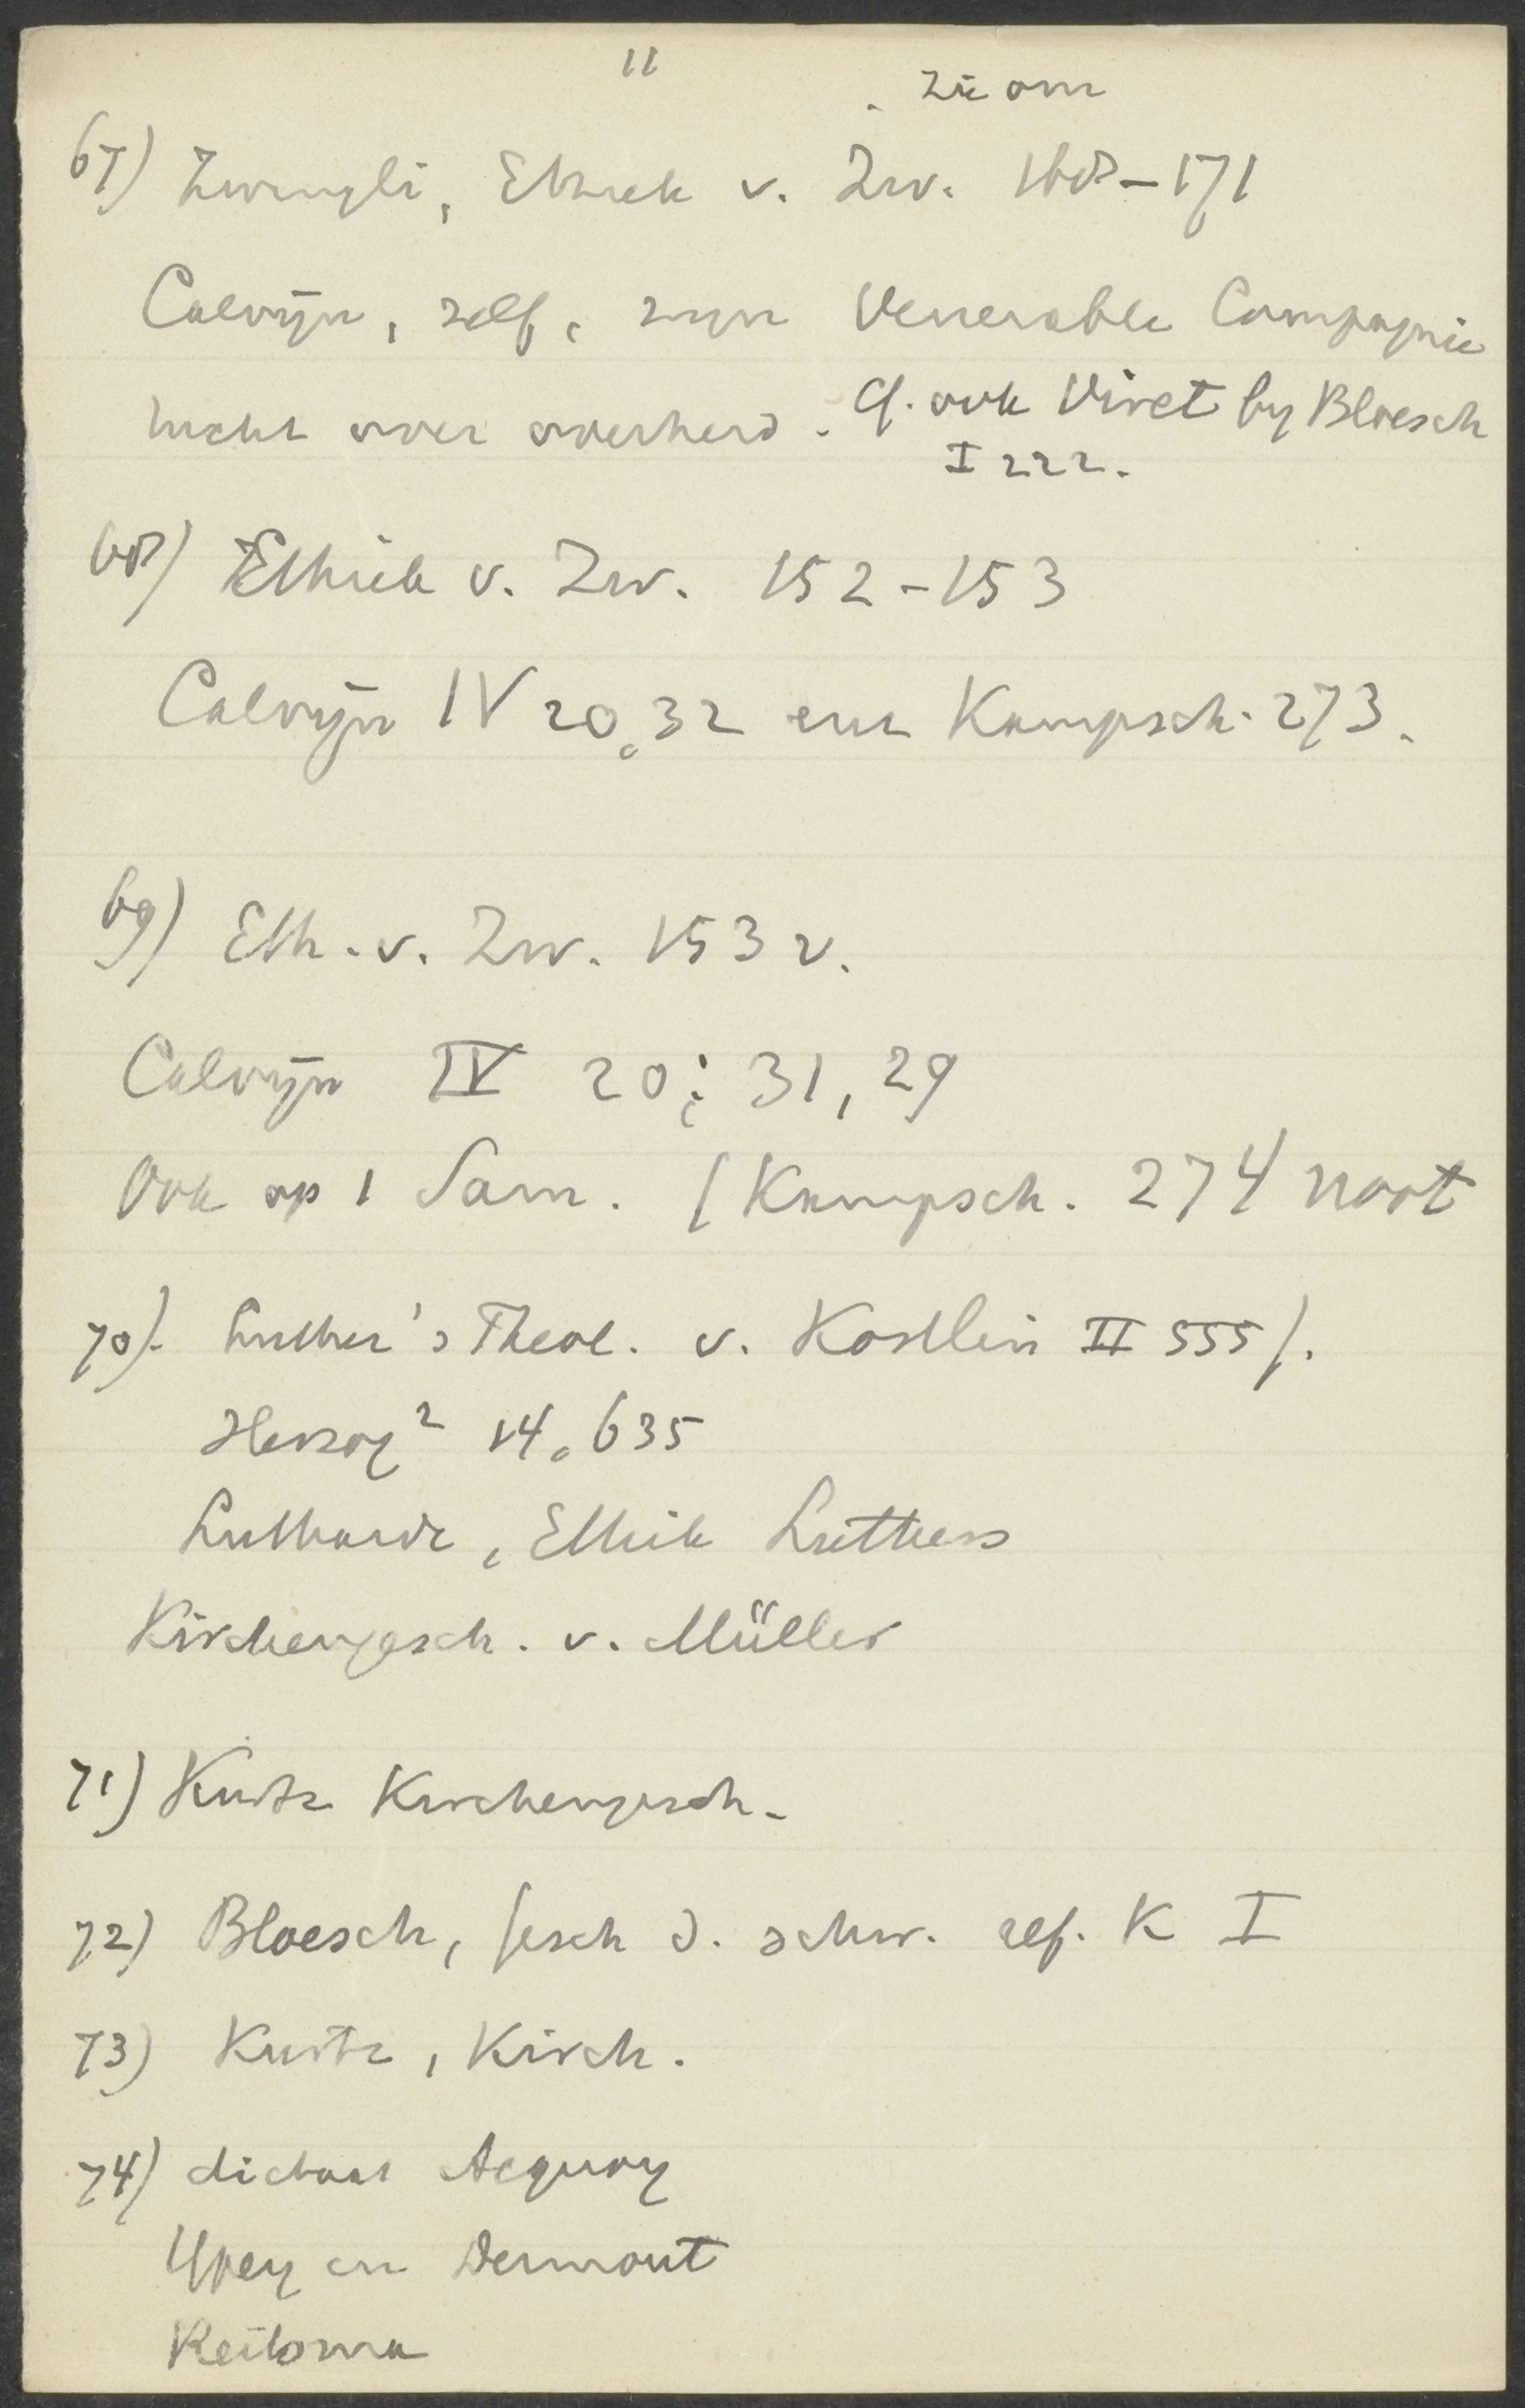 11
Zie om
67) Zwingli, Ethiek v. Zw. 168-171
Calvijn, zelf, zijn Venerable Compagnie
macht over overheid. Cf. ook Viret by Bloesch
I 222.
68) Ethiek v. Zw. 152-153
Calvijn IV 20, 32 en Kampsch. 273.
69) Eth. v. Zw. 153 v.
Calvijn IV 20; 31, 29
Ook op 1 Sam. (Kampsch. 274 noot
70). Luther's Theol. v. Kostlin II 555 f.
Herzog² 14, 635
Luthardt, Ethik Luthers
Kirchengesch. v. Müller
71) Kurtz Kirchengesch.
72) Bloesch, Gesch d. schw. ref. K I
73) Kurtz, Kirch.
74) dictaat Acquoy
Ypey en Dermout
Reitsma